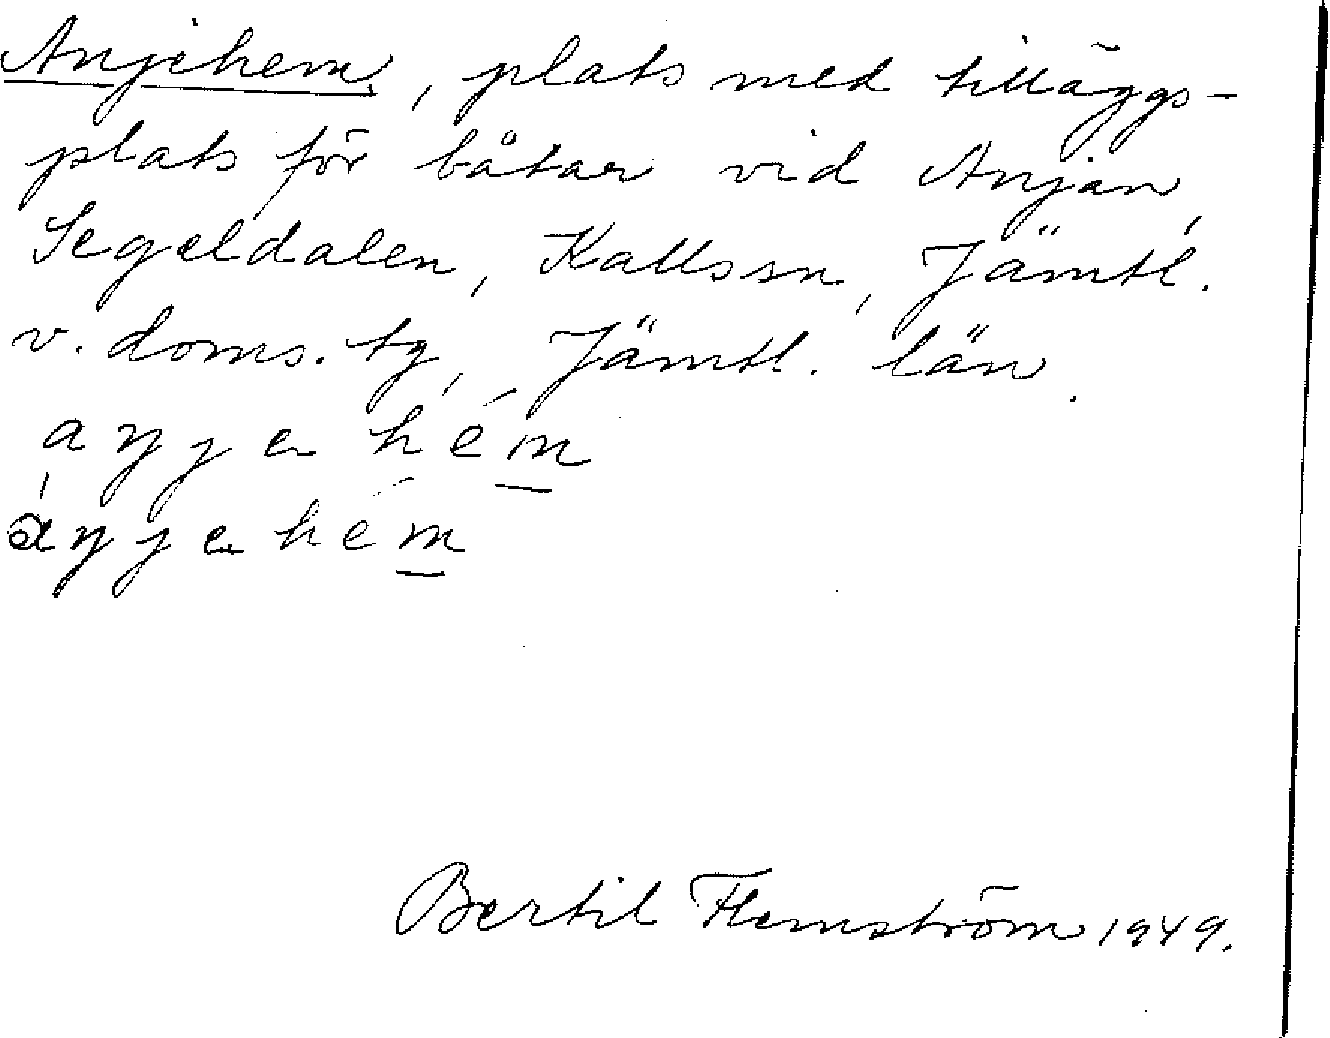 Anjehem, plats med tilläggs-
plats för båtar vid Anjan,
Segeldalen, Kallssn, Jämtl.
v. doms. tg, Jämtl. län.
aŋjen hém
àŋjen hém
Bertil Flemström 1949.